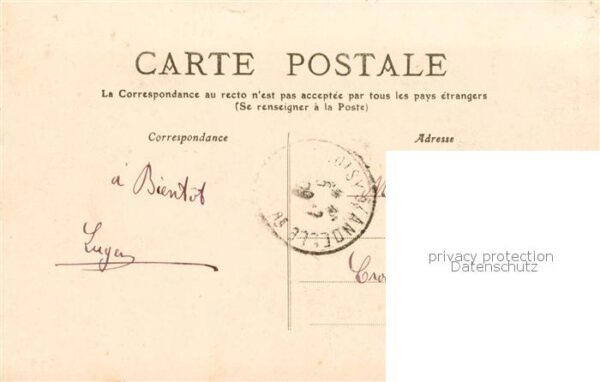 CARTE POSTALE
La Correspondance au recto n'est pas acceptée par tous les pays étrangers
(Se renseigner à la Poste)
Correspondance
Adresse
à Bientôt
privacy protection
Datenschutz